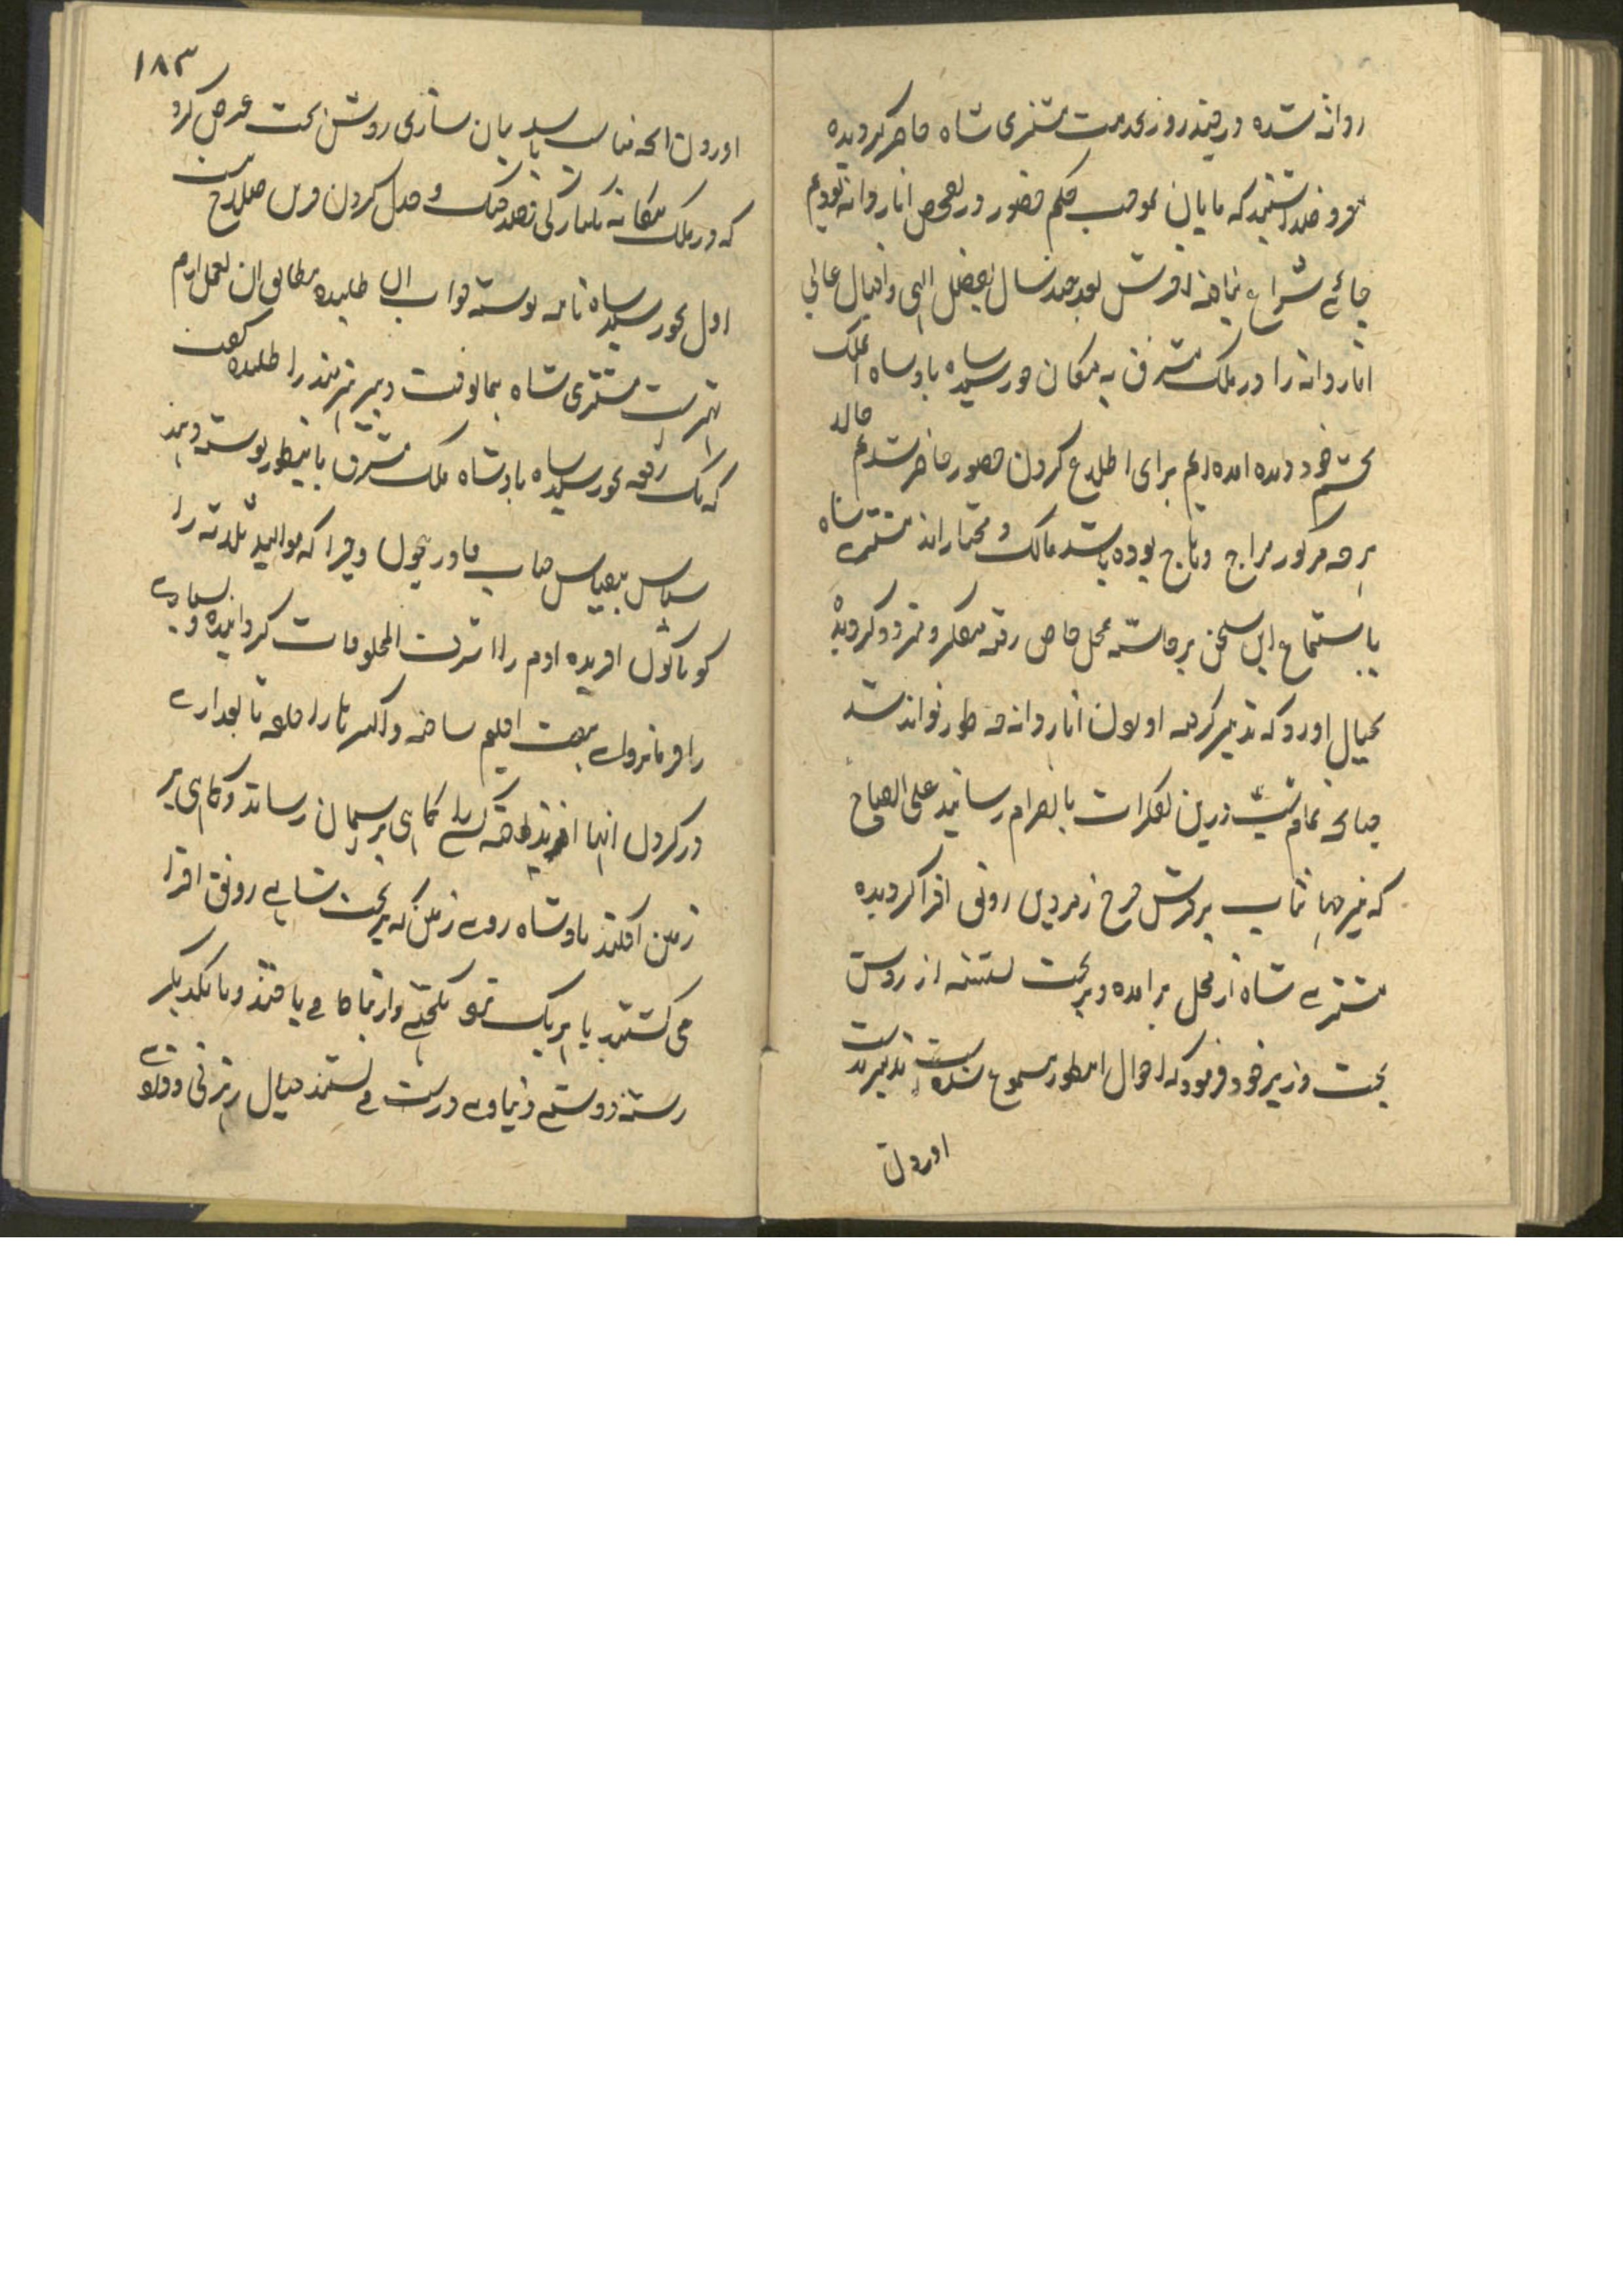 روانه شده در چند روز بخدمت مشتری شاه حاضر گردیده
معروض داشتند که مایان بموجب حکم حضور در تفحص انار دانه بودیم
جائے سراغ نیافته آخرش بعد چند سال بفضل الهی و اقبال عالی
انار دانه را در ملک مشرق به مکان خورشید شاه بادشاه آنملک
بچشم خود دیده آمده ایم برای اطلاع کردن حضور حاضر شدیم حالا
هرچه مرکوز مزاج وہاج بوده باشد مالک و مختار اند مشتری شاه
باستماع این سخن برخاسته بمحل خاص رفته متفکر و متردد گردیده
بخیال آورد که تدبیر گرفته آوردن انار دانه چه طور تواند شد
چنانچه تمام شب درین تفکرات بانصرام رسانید علی الصباح
که نیر جهانتاب بر عرش چرخ زمردین رونق افزا گردیده
مشتری شاه از محل برآمده و بر تخت نشسته از روشن
بخت وزیر خود فرمود که احوال اینطور مسموع شده است تدبیر بدست
آوردن
۱۸۳
آوردن آنچه مناسب باید بیان سازی روشن بخت عرض کرد
که در ملک بیگانه یکبارگی قصد جنگ و جدل کردن قرین صلاح نیست
اول بخورشید شاه نامه نوشته جواب آن طلبیده مطابق آن بعمل آرم
بهتر است مشتری شاه بهمانوقت دبیر هنرمند را طلبیده گفت
که یک رقعه بخورشید شاه بادشاه ملک مشرق باینطور نوشته دهند
سپاس بیقیاس جناب قادر بیچون و چرا که موالید ثلثه را
گو ناگون آفریده آدم را اشرف المخلوقات گردانیده و بسیارے
را فرمانرواے هفت اقلیم ساخته و اکثر ناس را حلقه تابعدارے
در گردن انها افزیده چنانچه یکے گاهی بر آسمان رساند و گاهی بر
زمین افکند بادشاه روے زمین که بر تخت شاهے رونق افزا
می گشتند با هر یک نحو یکجهتے و ارتباط مے یافتند و با یکدیگر
رشته دوستے دنیاوے درست مے بستند خیال رهزنی و دغاے